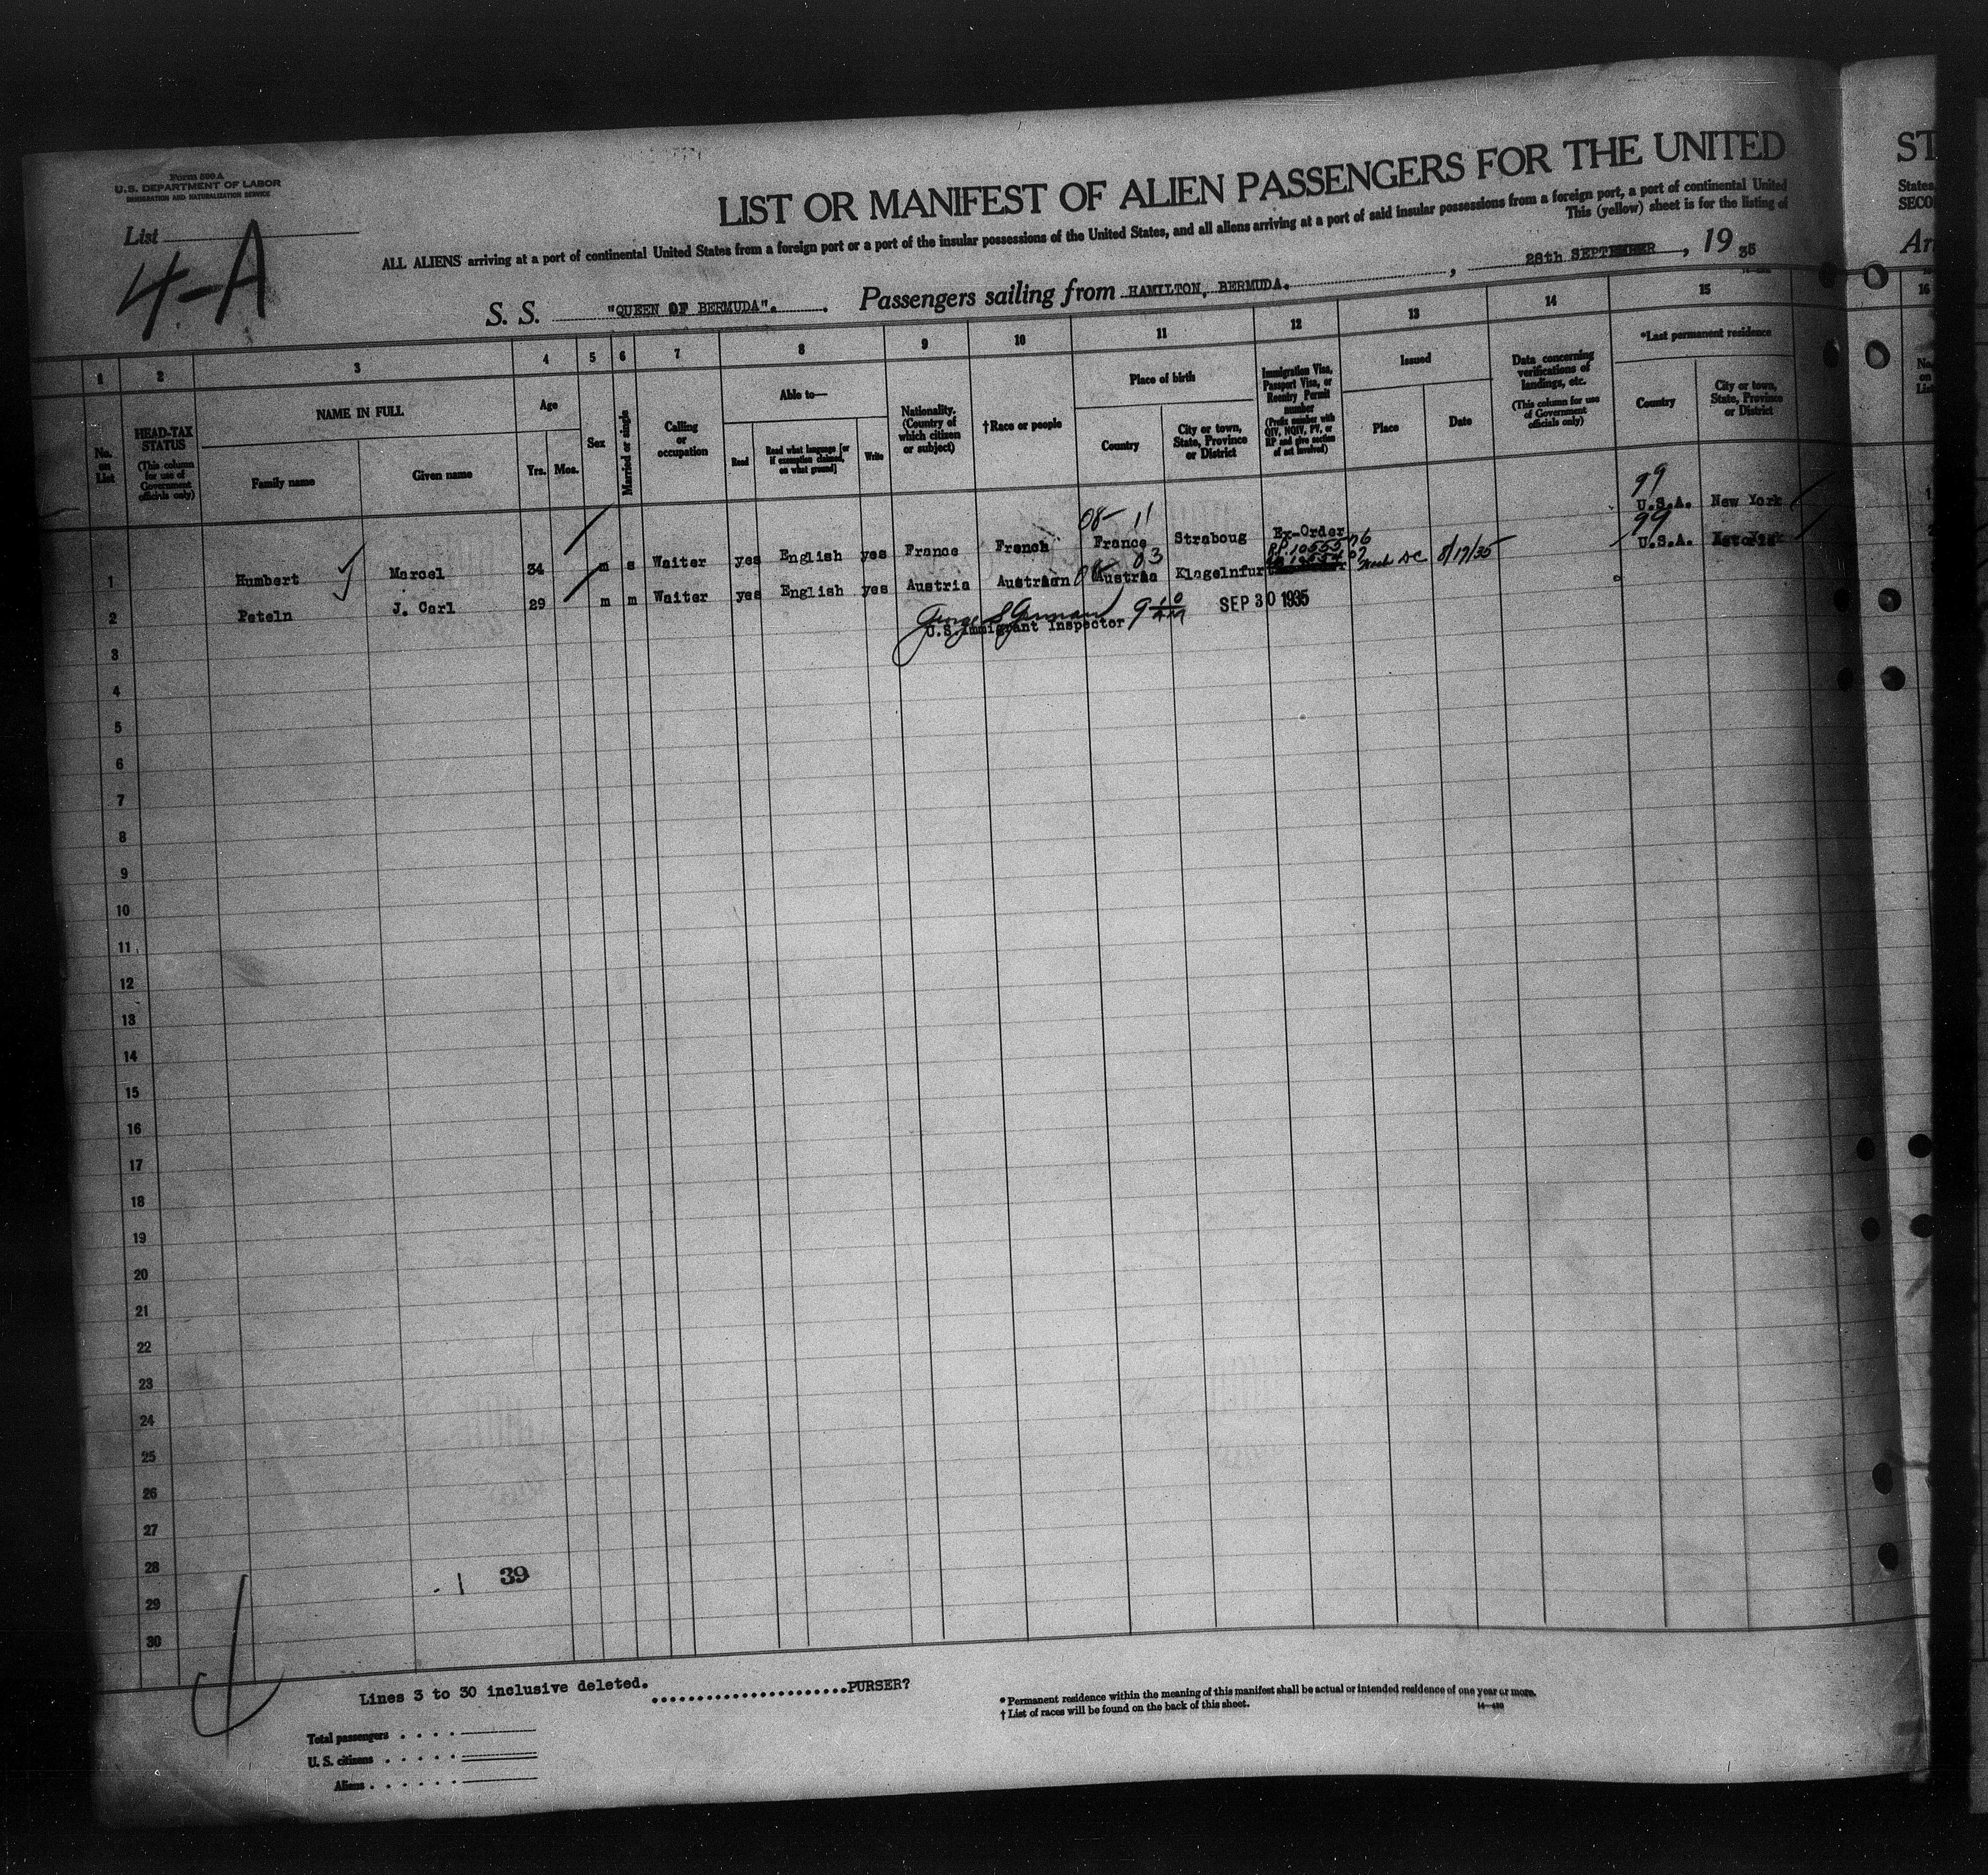 Form 500 A
U.S. DEPARTMENT OF LABOR
IMMIGRATION AND NATURALIZATION SERVICE
List
4-A
LIST OR MANIFEST OF ALIEN PASSENGERS FOR THE UNITED
ST
ALL ALIENS arriving at a port of continental United States from a foreign port or a port of the insular possessions of the United States, and all aliens arriving at a port of said insular possessions from a foreign port, a port of continental United
States,
This (yellow) sheet is for the listing of
SECO
S. S. "QUEEN OF BERMUDA". Passengers sailing from HAMILTON, BERMUDA. , 28th SEPTEMBER , 19 35
Arr
1 2 3 4 5 6 7 8 9 10 11 12 13 14 15 16
No. on List
HEAD-TAX STATUS
(This column for use of Government officials only)
NAME IN FULL
Family name
Given name
Age
Yrs. Mos.
Sex
Married or single
Calling or occupation
Able to—
Read
Read what language [or if exemption claimed, on what ground]
Write
Nationality. (Country of which citizen or subject)
†Race or people
Place of birth
Country
City or town, State, Province or District
Immigration Visa, Passport Visa, or Reentry Permit number
(Prefix number with QIV, NQIV, PV, or RP and give section of act involved)
Issued
Place
Date
Data concerning verifications of landings, etc.
(This column for use of Government officials only)
*Last permanent residence
Country
City or town, State, Province or District
No. on List
08- 11
99
1 Humbert Marcel 34 m s Waiter yes English yes France French France Straboug Ex-Order U.S.A. New York
83
99
2 Peteln J. Carl 29 m m Waiter yes English yes Austria Austrian Austria Klagelnfurt Wash DC 8/17/35 U.S.A.
U.S. Immigrant Inspector
SEP 30 1935
3
4
5
6
7
8
9
10
11
12
13
14
15
16
17
18
19
20
21
22
23
24
25
26
27
28
29
30
39
Lines 3 to 30 inclusive deleted. ......................PURSER?
* Permanent residence within the meaning of this manifest shall be actual or intended residence of one year or more.
† List of races will be found on the back of this sheet.
Total passengers . . . .
U. S. citizens . . . . .
Aliens . . . . . .